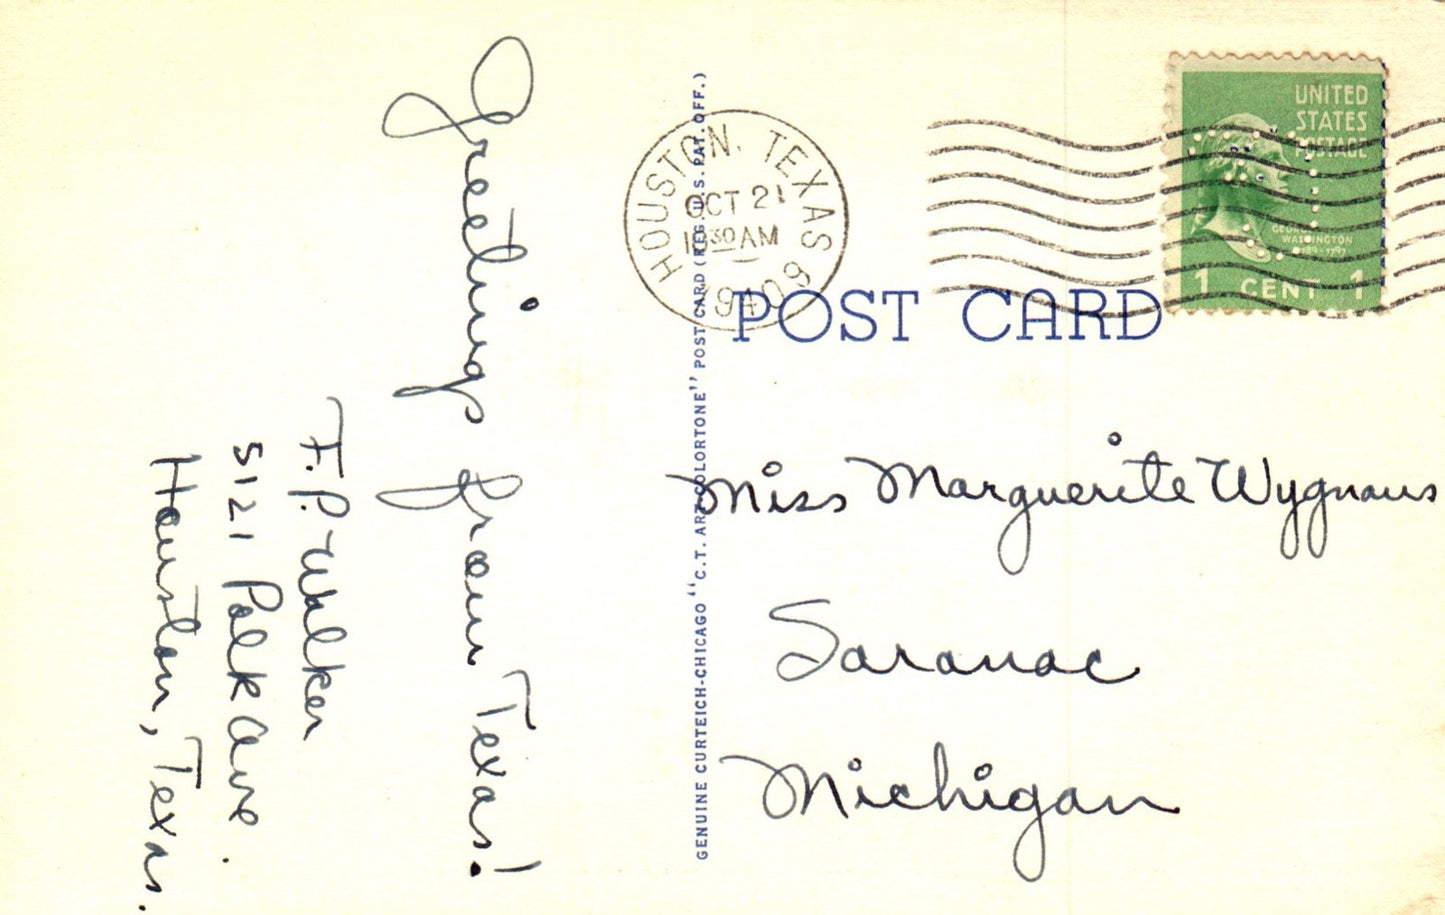 Greetings from Texas!
F. P. Walker
5121 Polk Ave.
Houston, Texas.
GENUINE CURTEICH-CHICAGO "C.T. ART-COLORTONE" POST CARD (REG. U.S. PAT. OFF.)
HOUSTON, TEXAS
OCT 21
10 30 AM
1940
POST CARD
UNITED
STATES
POSTAGE
GEORGE
WASHINGTON
1789-1797
1 CENT 1
Miss Marguerite Wygnaus
Saranac
Michigan